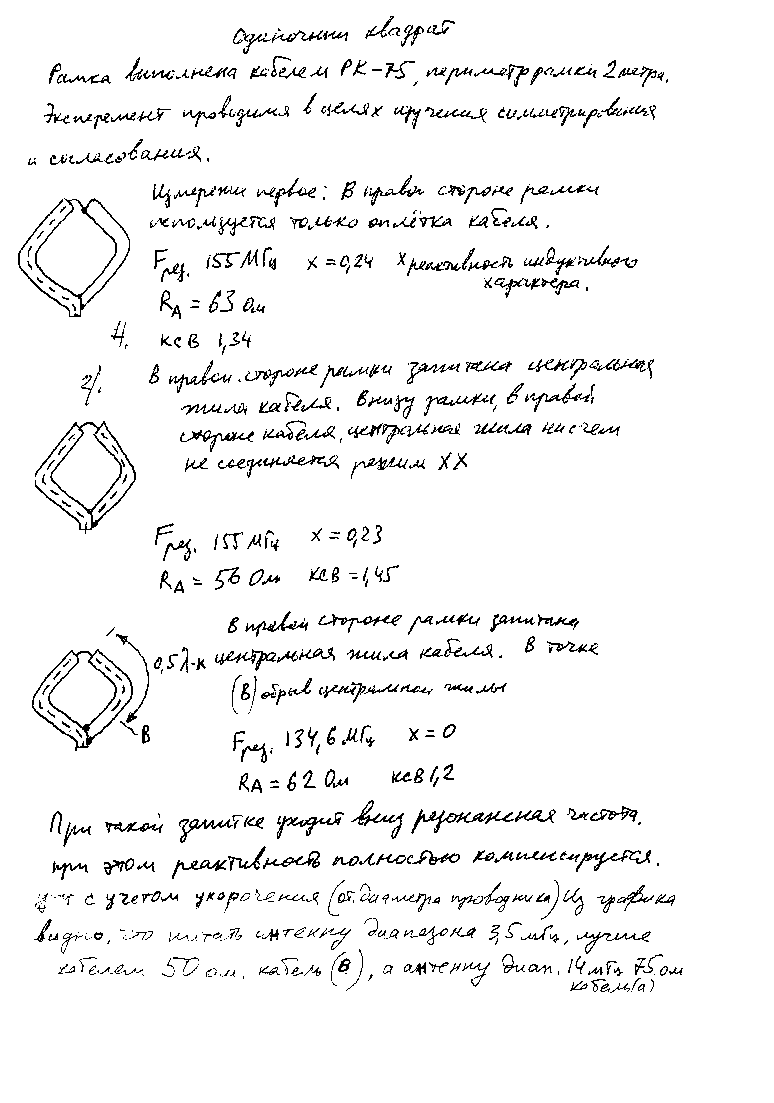 Одиночный квадрат
Рамка выполнена кабелем РК-75, периметр рамки 2 метра.
Эксперемент проводимя в целях изучения симметрирования
и согласования.
Измережи первое: В правой стороне рамки
используется только оплётка кабеля.
Fрез. 155 МГц x = 0,24 x реактивность индуктивного
характера.
RA = 63 Ом
1/. КСВ 1,34
2/. В правой стороне рамки запитана центральная
жила кабеля. Внизу рамки, в правой
стороне кабеля, центральная жила нисчем
не соединяется режим ХХ
Fрез. 155 МГц x = 0,23
RA = 56 Ом КСВ = 1,45
В правой стороне рамки запитана
0,5 λ-к центральная жила кабеля. В точке
(В) обрыв центральной жилы
В
Fрез. 134,6 МГц x = 0
RA = 62 Ом КСВ 1,2
При такой запитке уходит вниз резонансная частота,
при этом реактивность полностью компенсируется.
с учетом укорочения (от диаметра проводника) Из графика
видно, что питать антенну диапазона 3,5 мгц, лучше
кабелем 50 ом. кабель (в), а антенну диап. 14 мгц 75 ом
кабель (а)